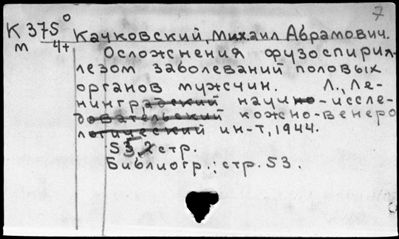 7
К 375° Качковский, Михаил Абрамович.
м 4+ Осложнения фузоспирил-
лезом заболеваний половых
органов мужчин. Л., Ле-
нинградский научно-иссле-
довательский кожно-венеро
логический ин-т, 1944.
53, 2 стр.
Библиогр.: стр. 53.